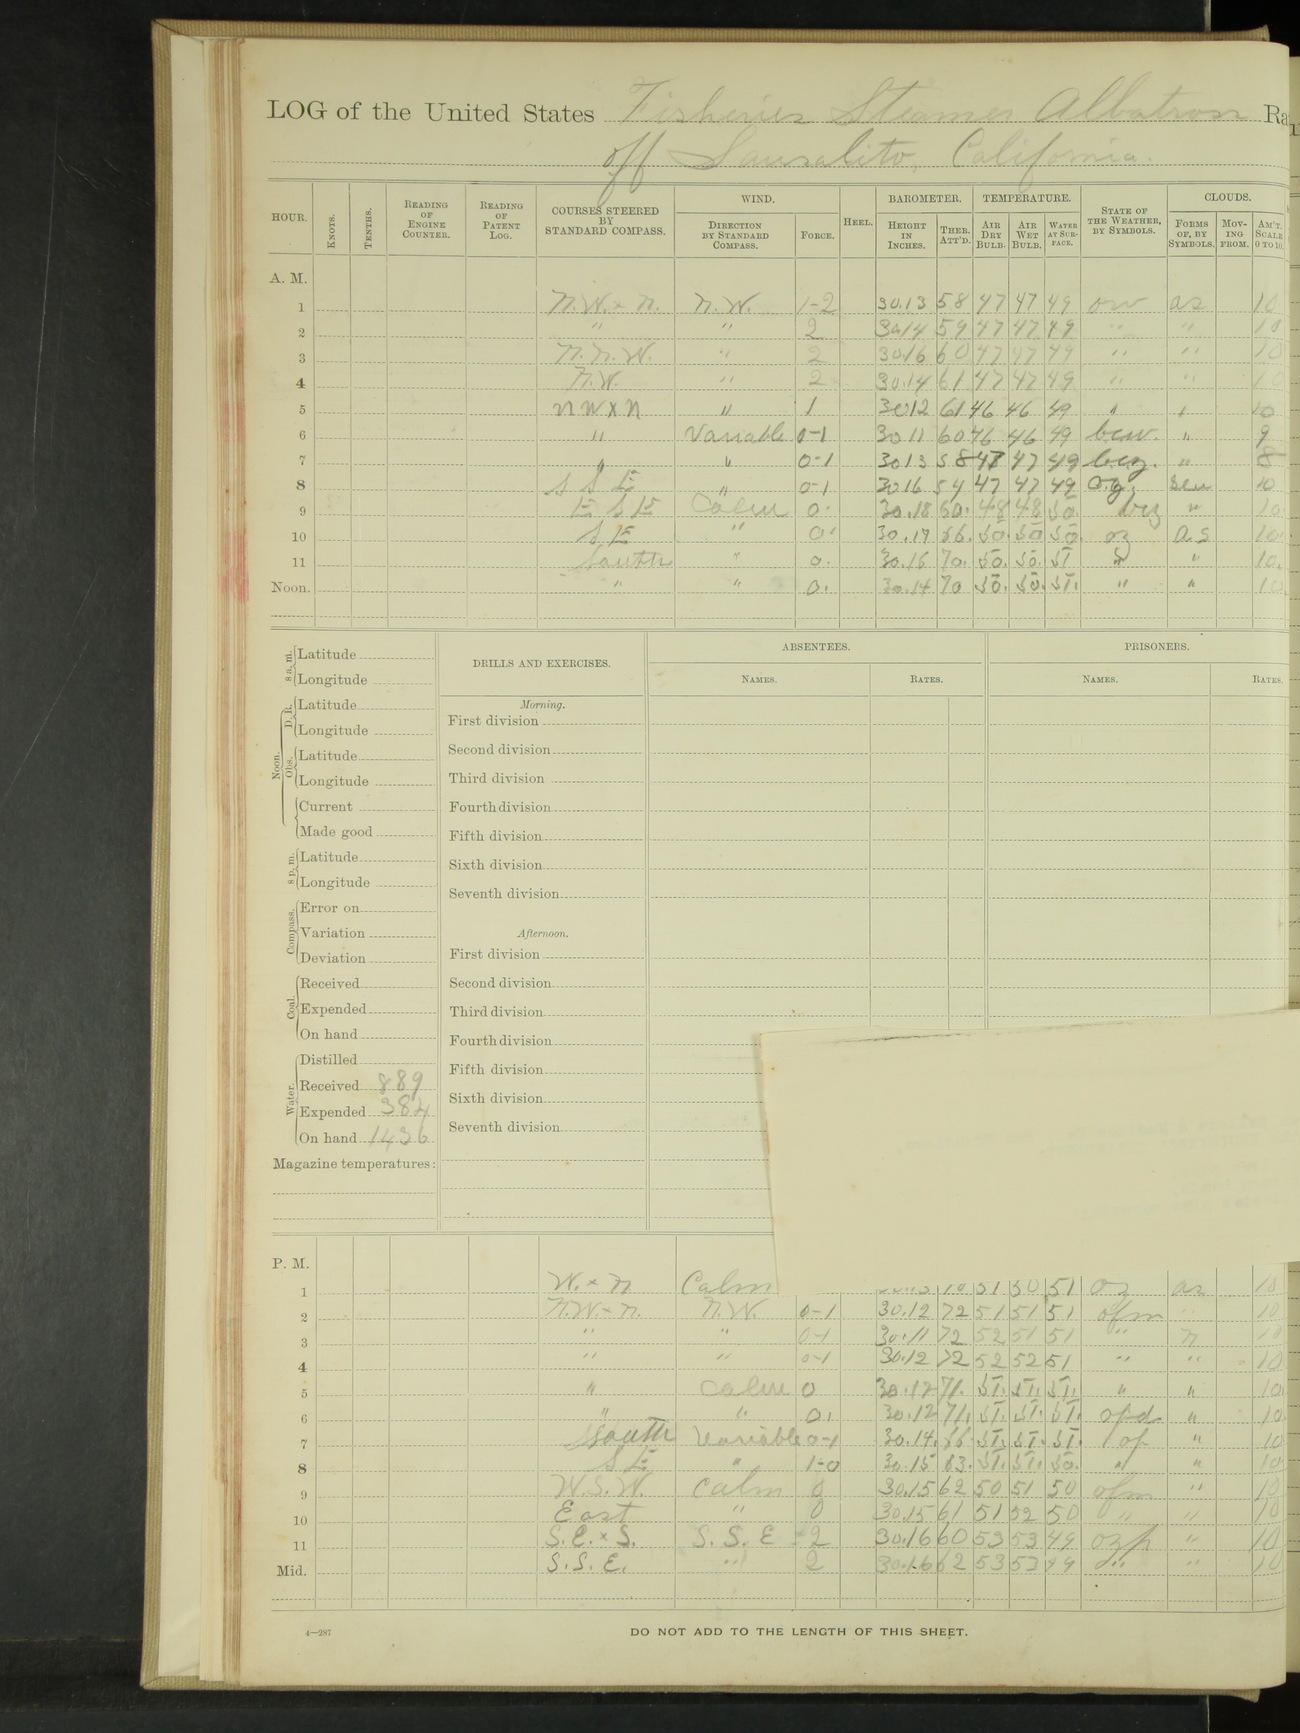 LOG of the United States Fisheries Steamer Albatross Ra
off Sausalito, California.
HOUR. KNOTS. TENTHS. READING OF ENGINE COUNTER. READING OF PATENT LOG. COURSES STEERED BY STANDARD COMPASS. WIND. DIRECTION BY STANDARD COMPASS. FORCE. HEEL. BAROMETER. HEIGHT IN INCHES. THER. ATT'D. TEMPERATURE. AIR DRY BULB. AIR WET BULB. WATER AT SURFACE. STATE OF THE WEATHER, BY SYMBOLS. CLOUDS. FORMS OF, BY SYMBOLS. MOVING FROM. AM'T. SCALE 0 TO 10.
A. M.
1 N.W. x N. N.W. 1-2 30.13 58 47 47 49 as 10
2 " " 2 30.14 59 47 47 49 " " 10
3 N.N.W. " 2 30.16 60 47 47 49 " " 10
4 N.W. " 2 30.14 61 47 47 49 " " 10
5 NW x N " 1 30 12 61 46 46 49 " " 10
6 " Variable 0-1 30 11 60 46 46 49 bcw. " 9
7 " " 0-1 30 13 58 47 47 49 bcz. " 8
8 S S E " 0-1 30 16 54 47 47 49 o.g. 10
9 E S E Calm 0. 30.18 60. 48 48 50. bcz " 10
10 S E " 0. 30.17 66. 50. 50 50. oz as 10
11 South " 0. 30.16 70. 50. 50. 51 " " 10.
Noon. " " 0. 30.14 70 50. 50. 51. " " 10
8 a.m. Latitude
Longitude
Noon. D. R. Latitude
Longitude
Obs. Latitude
Longitude
Current
Made good
8 p.m. Latitude
Longitude
Compass. Error on
Variation
Deviation
Coal. Received
Expended
On hand
Water. Distilled
Received 889
Expended 384
On hand 1436
Magazine temperatures:
DRILLS AND EXERCISES.
Morning.
First division
Second division
Third division
Fourth division
Fifth division
Sixth division
Seventh division
Afternoon.
First division
Second division
Third division
Fourth division
Fifth division
Sixth division
Seventh division
ABSENTEES.
NAMES. RATES.
PRISONERS.
NAMES. RATES.
P. M.
1 W. x N Calm 70 51 50 51 oz as 10
2 N.W. x N. N.W. 0-1 30.12 72 51 51 51 ofm " 10
3 " " 0-1 30.11 72 52 51 51 " n 10
4 " " 0-1 30.12 72 52 52 51 " " 10
5 " Calm 0 30.12 71. 51. 51. 51. " " 10.
6 " " 0. 30.12 71. 51. 51. 51. ofd " 10.
7 South Variable 0-1 30.14. 66 51. 51. 51. of " 10
8 S E " 1-0 30.15 63. 51. 51. 50. " " 10
9 W.S.W. Calm 0 30.15 62 50 51 50 ofm " 10
10 East " 0 30.15 61 51 52 50 " " 10
11 S.E. x S. S. S. E 2 30.16 60 53 53 49 ozp " 10
Mid. S.S.E. " 2 30.16 62 53 53 49 " " 10
4—287
DO NOT ADD TO THE LENGTH OF THIS SHEET.